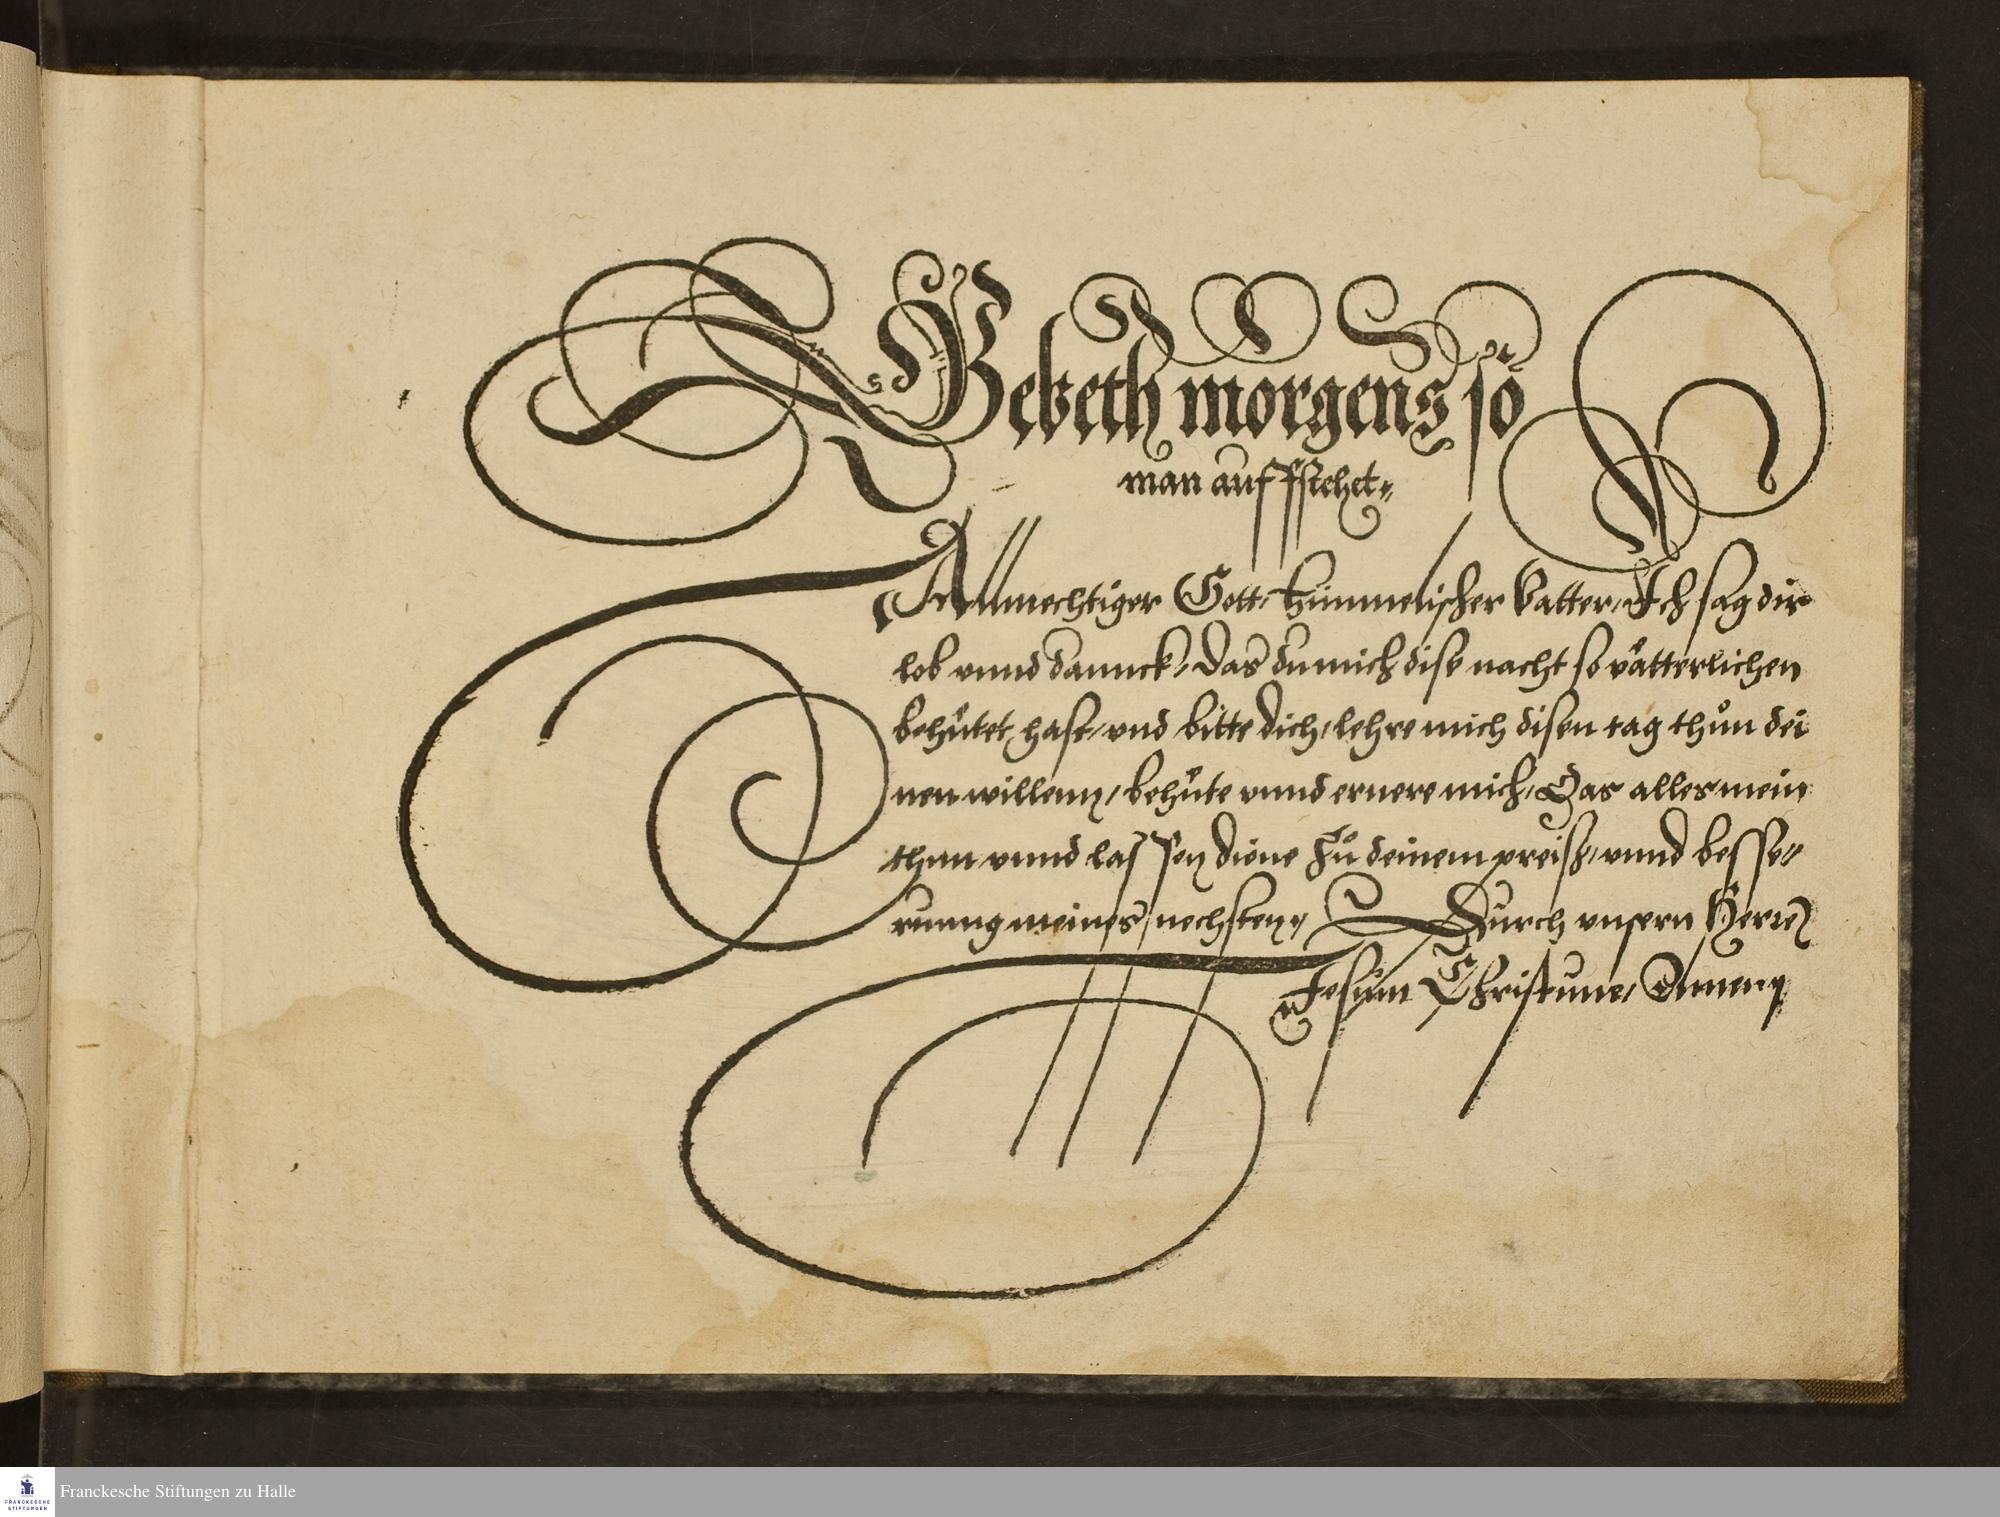 Gebeth morgens so
man auffstehet.
Allmechtiger Gott, himmelischer Vatter, Ich sag dir
lob vnnd dannck, Das du mich dise nacht so vätterlichen
behütet hast, vnd bitte dich, lehre mich disen tag thůn dei
nen willenn, behüte vnnd ernere mich, Das alles mein
thun vnnd lassen diene zů deinem preiß, vnnd besse-
runng meines nechsten, Durch vnsern Herren
Jesum Christum, Amenn
Franckesche Stiftungen zu Halle
FRANCKESCHE
STIFTUNGEN